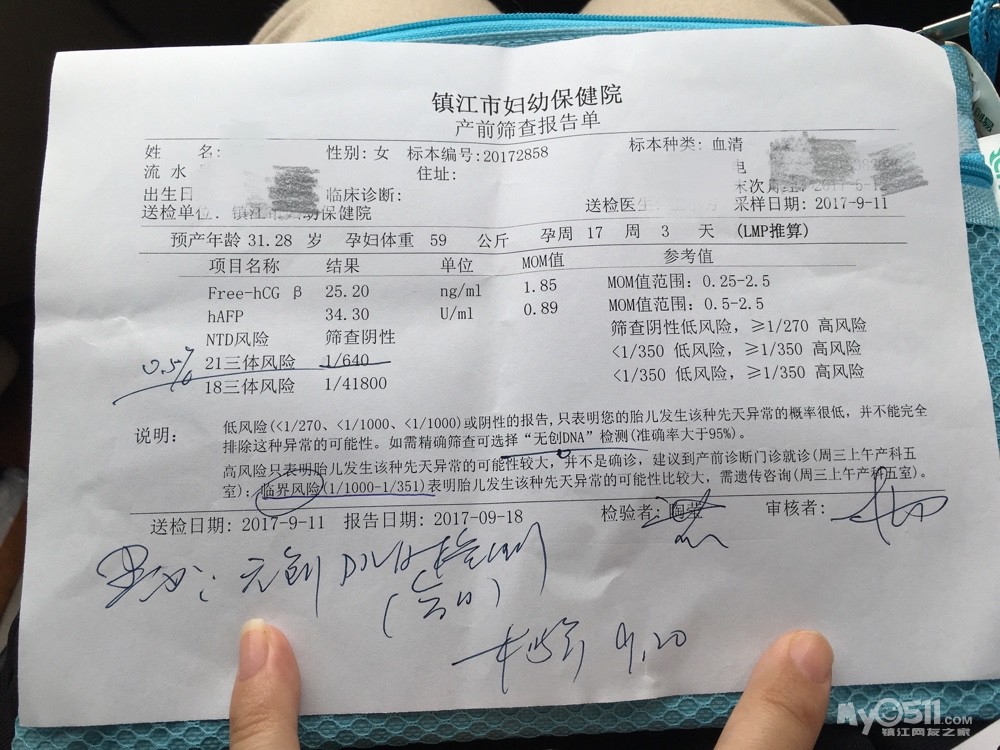 镇江市妇幼保健院
产前筛查报告单
姓 名: 性别: 女 标本编号:20172858 标本种类: 血清
流 水 住址: 电
出生日 临床诊断: 末次月经: 2017-5-12
送检单位: 镇江市妇幼保健院 送检医生: 采样日期: 2017-9-11
预产年龄 31.28 岁 孕妇体重 59 公斤 孕周 17 周 3 天 (LMP推算)
项目名称 结果 单位 MOM值 参考值
Free-hCG β 25.20 ng/ml 1.85 MOM值范围: 0.25-2.5
hAFP 34.30 U/ml 0.89 MOM值范围: 0.5-2.5
NTD风险 筛查阴性 筛查阴性低风险, ≥1/270 高风险
0.5% 21三体风险 1/640 <1/350 低风险, ≥1/350 高风险
18三体风险 1/41800 <1/350 低风险, ≥1/350 高风险
说明: 低风险(<1/270、<1/1000、<1/1000)或阴性的报告, 只表明您的胎儿发生该种先天异常的概率很低, 并不能完全
排除这种异常的可能性。如需精确筛查可选择“无创DNA”检测(准确率大于95%)。
高风险只表明胎儿发生该种先天异常的可能性较大, 并不是确诊, 建议到产前诊断门诊就诊(周三上午产科五
室); 临界风险(1/1000-1/351)表明胎儿发生该种先天异常的可能性比较大, 需遗传咨询(周三上午产科五室)。
送检日期: 2017-9-11 报告日期: 2017-09-18 检验者: 审核者:
无创DNA检测
9.20
My0511.COM
镇江网友之家